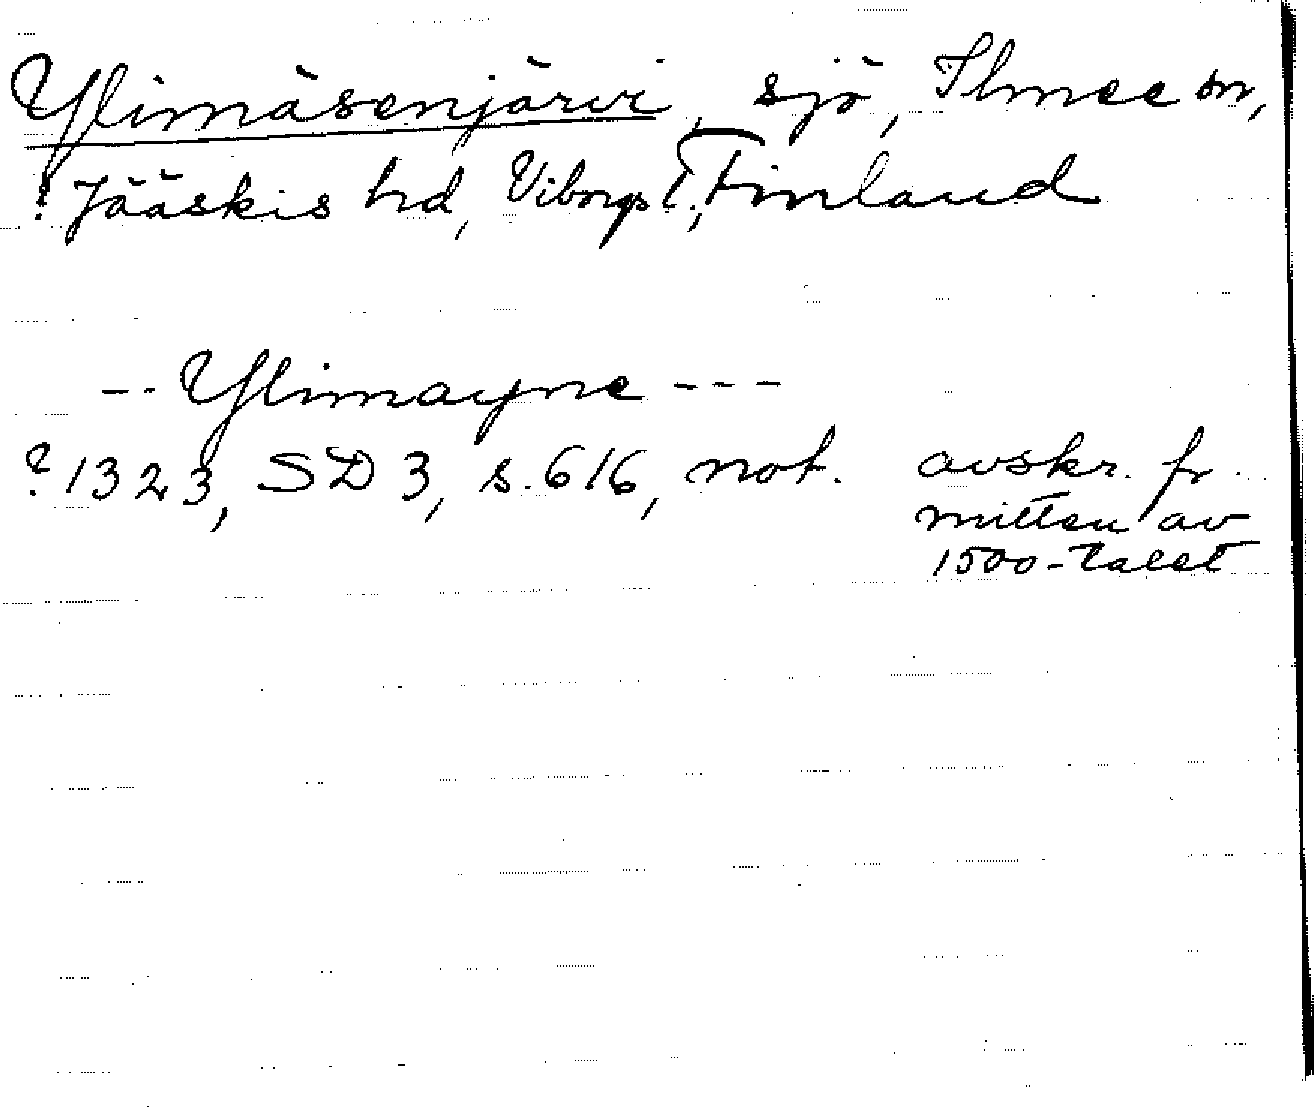 Ylimäsenjärvi, sjö, Ilmee sn,
! Jääskis hd, Viborgs l., Finland
-- Ylimayne ---
? 1323, SD 3, s. 616, not. avskr. fr.
mitten av
1500-talet